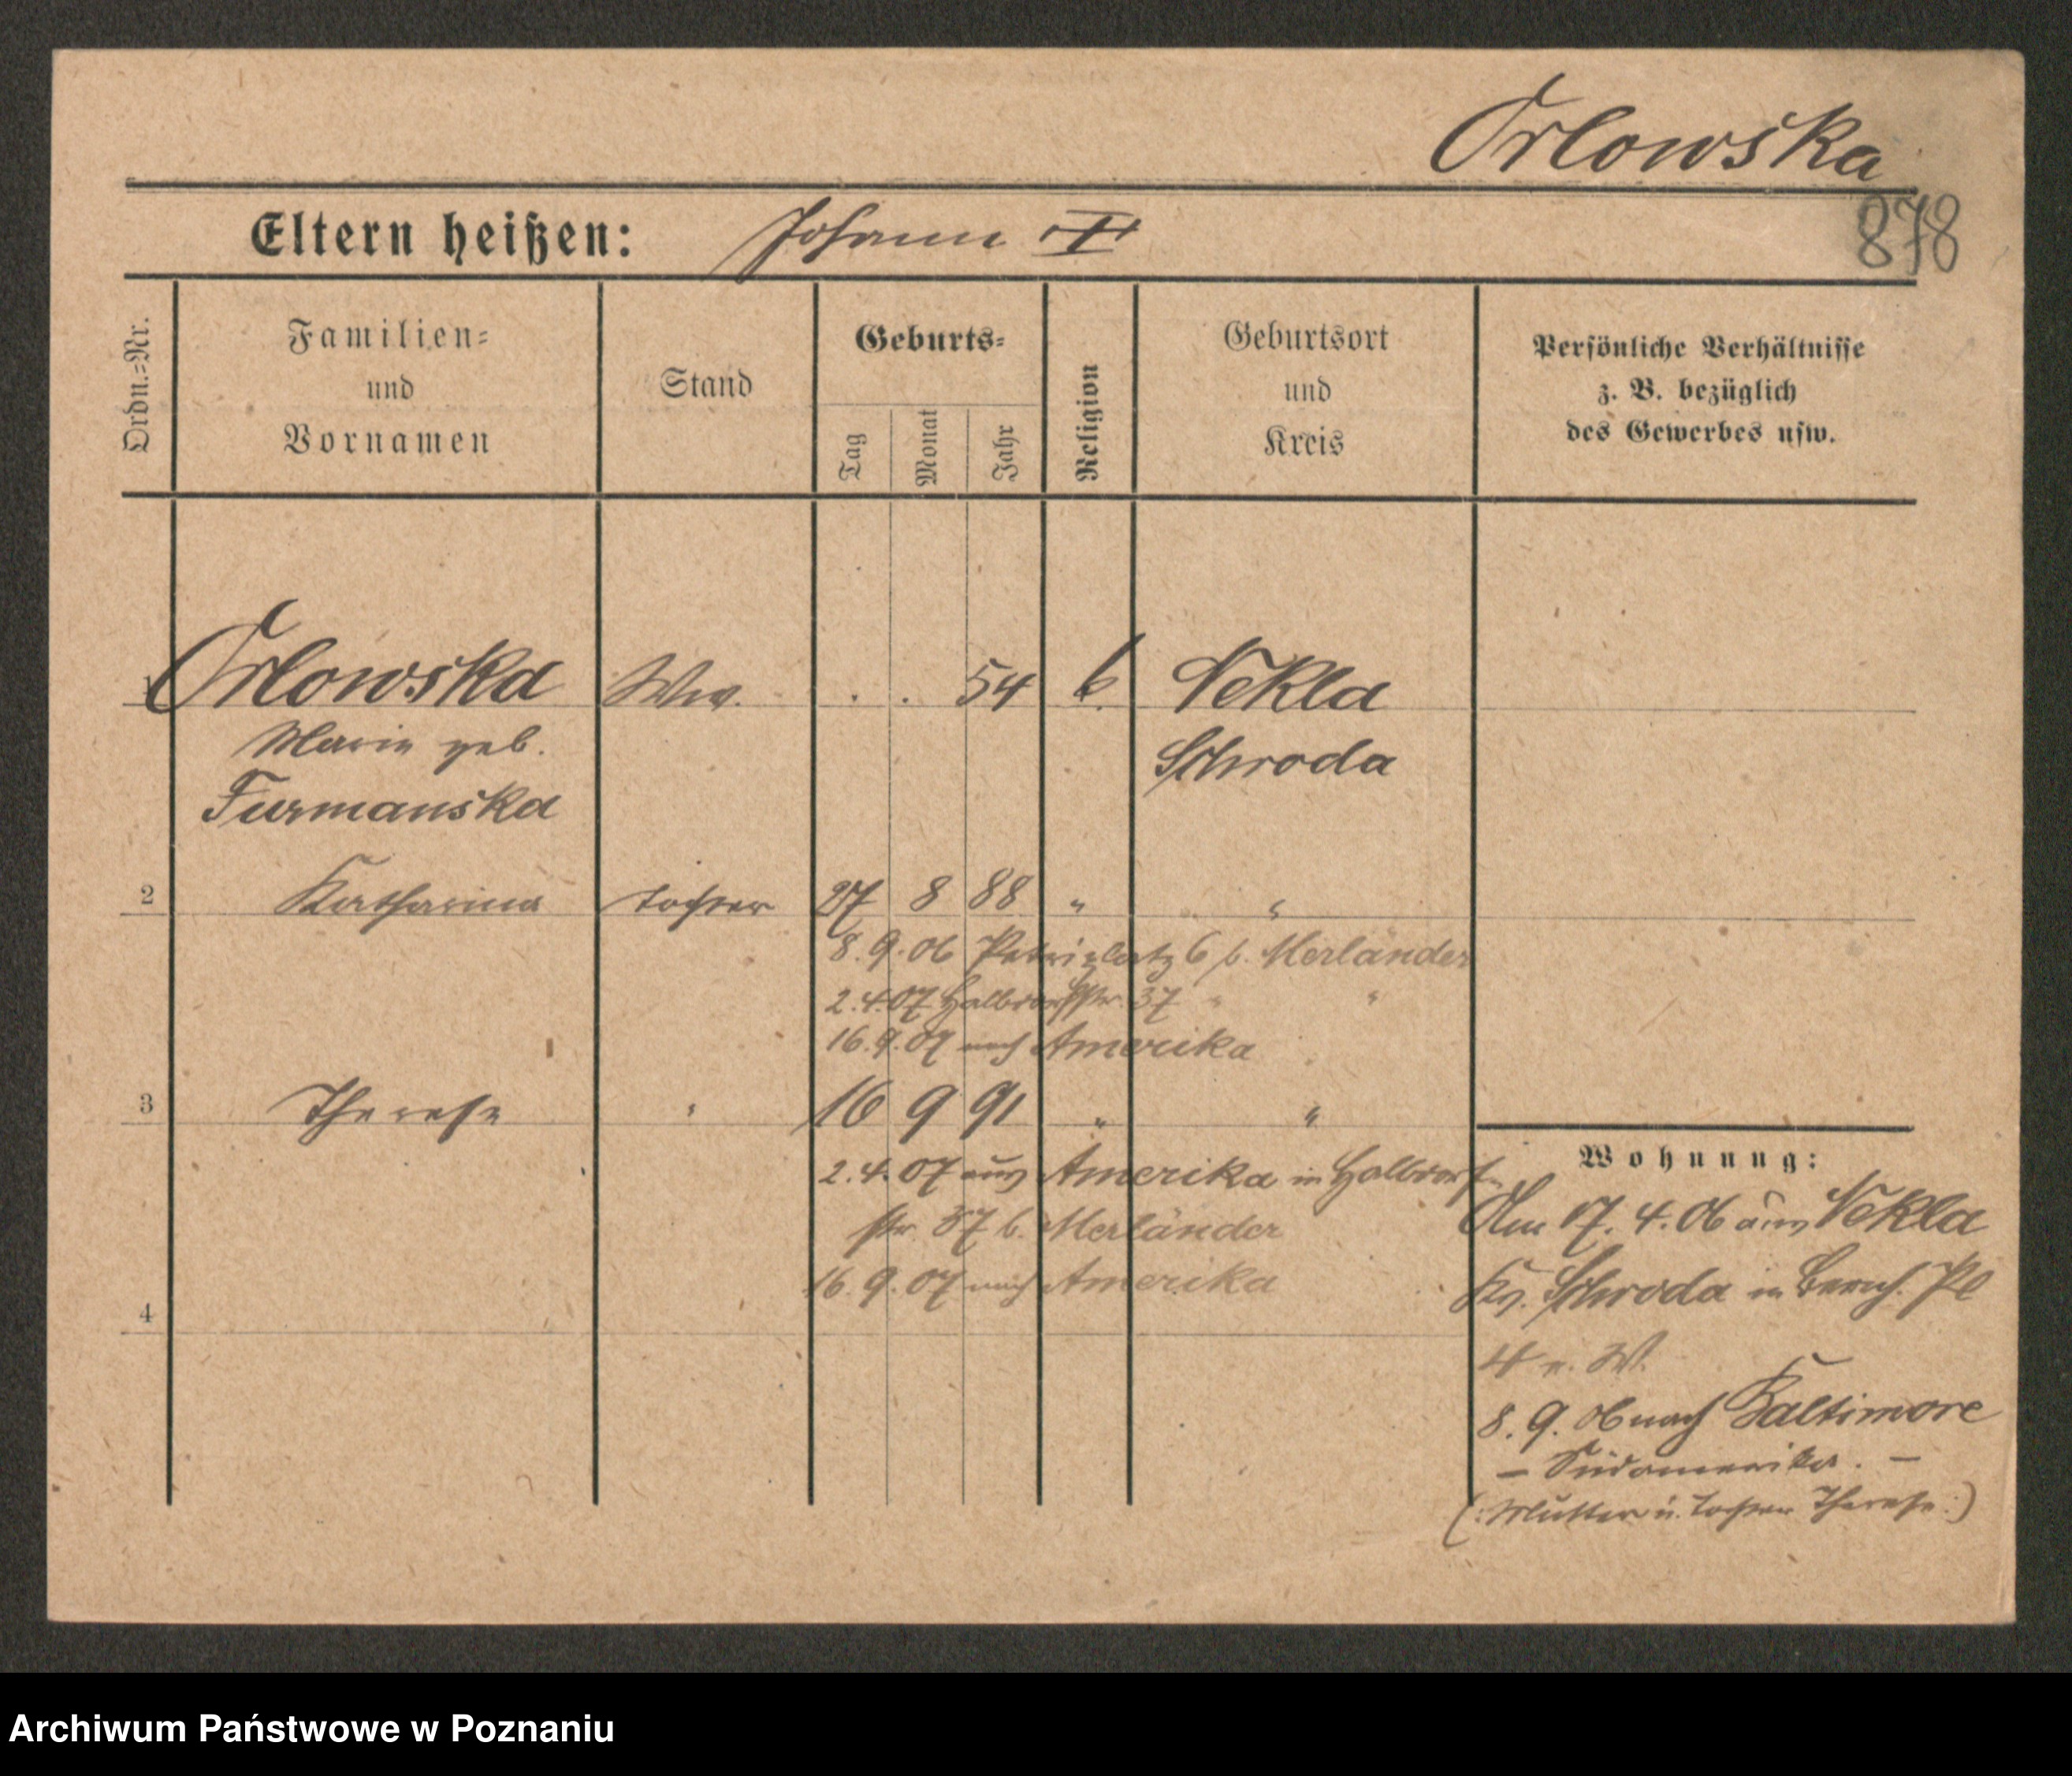 Orlowska
878
Eltern heißen: Johann
Ordn.-Nr.
Familien-
und
Vornamen
Stand
Geburts-
Tag
Monat
Jahr
Religion
Geburtsort
und
Kreis
Persönliche Verhältnisse
z. B. bezüglich
des Gewerbes usw.
1 Orlowska Ww. . . 54 Nekla
Marie geb. Schroda
Furmanska
2 Katharina Tochter 27 8 88 " "
8.9.06 Petriplatz 6 b. Merländer
2.4.07 Halbdorfstr. 37 " "
16.9.07 nach Amerika
3 Therese " 16 9 91 " "
2.4.07 aus Amerika in Halbdorf-
str. 37 b. Merländer
16.9.07 nach Amerika
4
Wohnung:
Am 17.4.06 aus Nekla
Kr. Schroda in Bernh. Pl
4 n. W.
8.9.06 nach Baltimore
– Südamerika. –
(: Mutter u. Tochter Therese :)
Archiwum Państwowe w Poznaniu